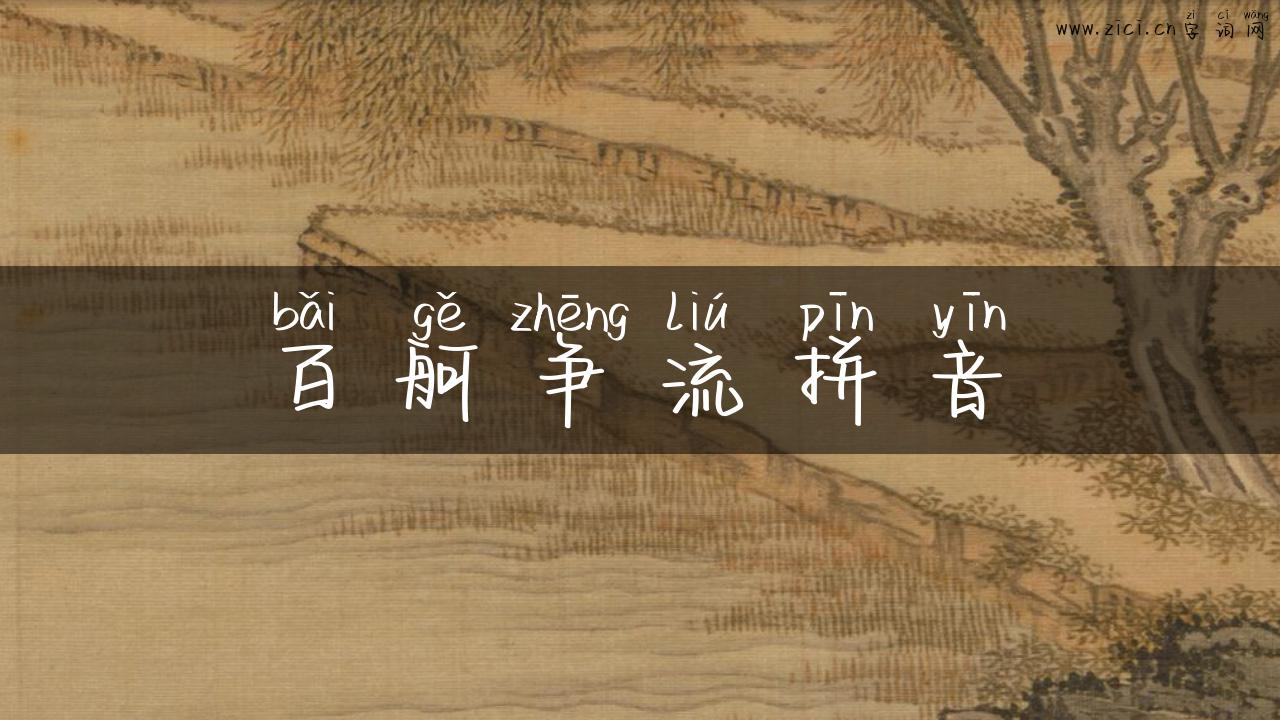 zì cí wǎng
www.zici.cn字词网
bǎi gě zhēng liú pīn yīn
百舸争流拼音